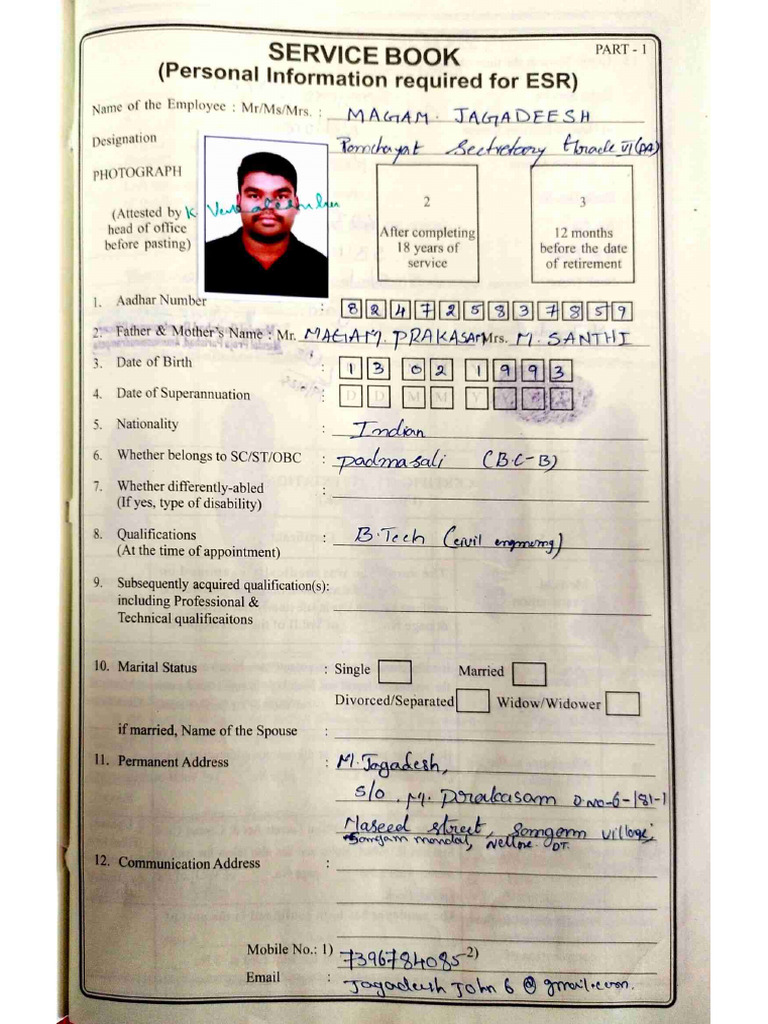 SERVICE BOOK
PART - 1
(Personal Information required for ESR)
Name of the Employee : Mr/Ms/Mrs. : MAGAM. JAGADEESH
Designation Panchayat Secretary Grade VI (DA)
PHOTOGRAPH
(Attested by
head of office
before pasting)
K
2
After completing
18 years of
service
3
12 months
before the date
of retirement
1. Aadhar Number : 8 2 4 7 2 5 8 3 7 8 5 9
2. Father & Mother's Name : Mr. MAGAM. PRAKASAM Mrs. M. SANTHI
3. Date of Birth : 1 3 0 2 1 9 9 3
4. Date of Superannuation : D D M M Y
5. Nationality : Indian
6. Whether belongs to SC/ST/OBC : padmasali (B.C-B)
7. Whether differently-abled :
(If yes, type of disability)
8. Qualifications : B.Tech (civil engineering)
(At the time of appointment)
9. Subsequently acquired qualification(s):
including Professional &
Technical qualificaitons
10. Marital Status : Single Married
Divorced/Separated Widow/Widower
if married, Name of the Spouse :
11. Permanent Address : M. Jagadesh,
S/o . M. prakasam D.NO-6-181-1
Maseed street, Sangam village,
Sangam mandal, Nellore. DT.
12. Communication Address :
Mobile No.: 1) 7396784085 2)
Email : Jagadeesh John 6 @ gmail.com.